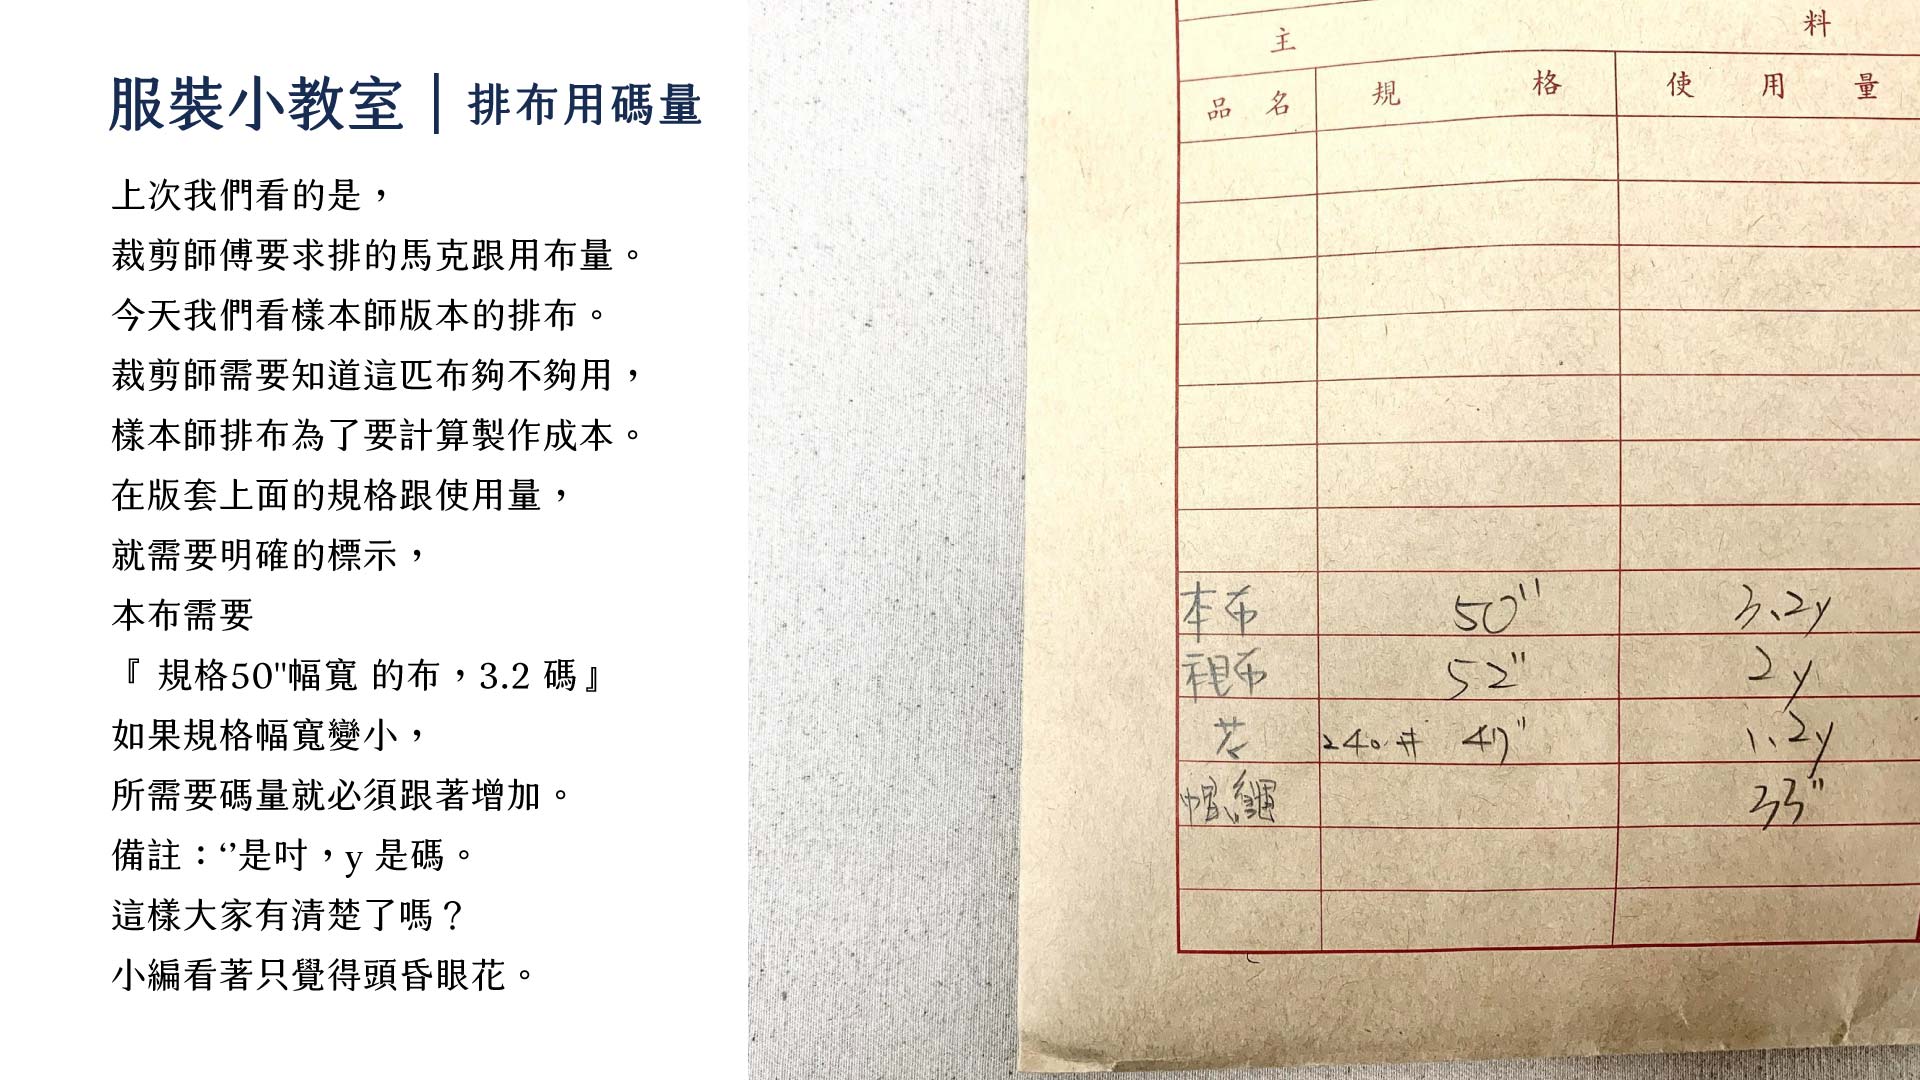 服裝小教室｜排布用碼量
上次我們看的是，
裁剪師傅要求排的馬克跟用布量。
今天我們看樣本師版本的排布。
裁剪師需要知道這匹布夠不夠用，
樣本師排布為了要計算製作成本。
在版套上面的規格跟使用量，
就需要明確的標示，
本布需要
『 規格50"幅寬 的布，3.2 碼』
如果規格幅寬變小，
所需要碼量就必須跟著增加。
備註：‘’是吋，y 是碼。
這樣大家有清楚了嗎？
小編看著只覺得頭昏眼花。
主 料
品名 規格 使用量
本布 50" 3.2y
裡布 52" 2y
240# 47" 1.2y
帽繩 33"